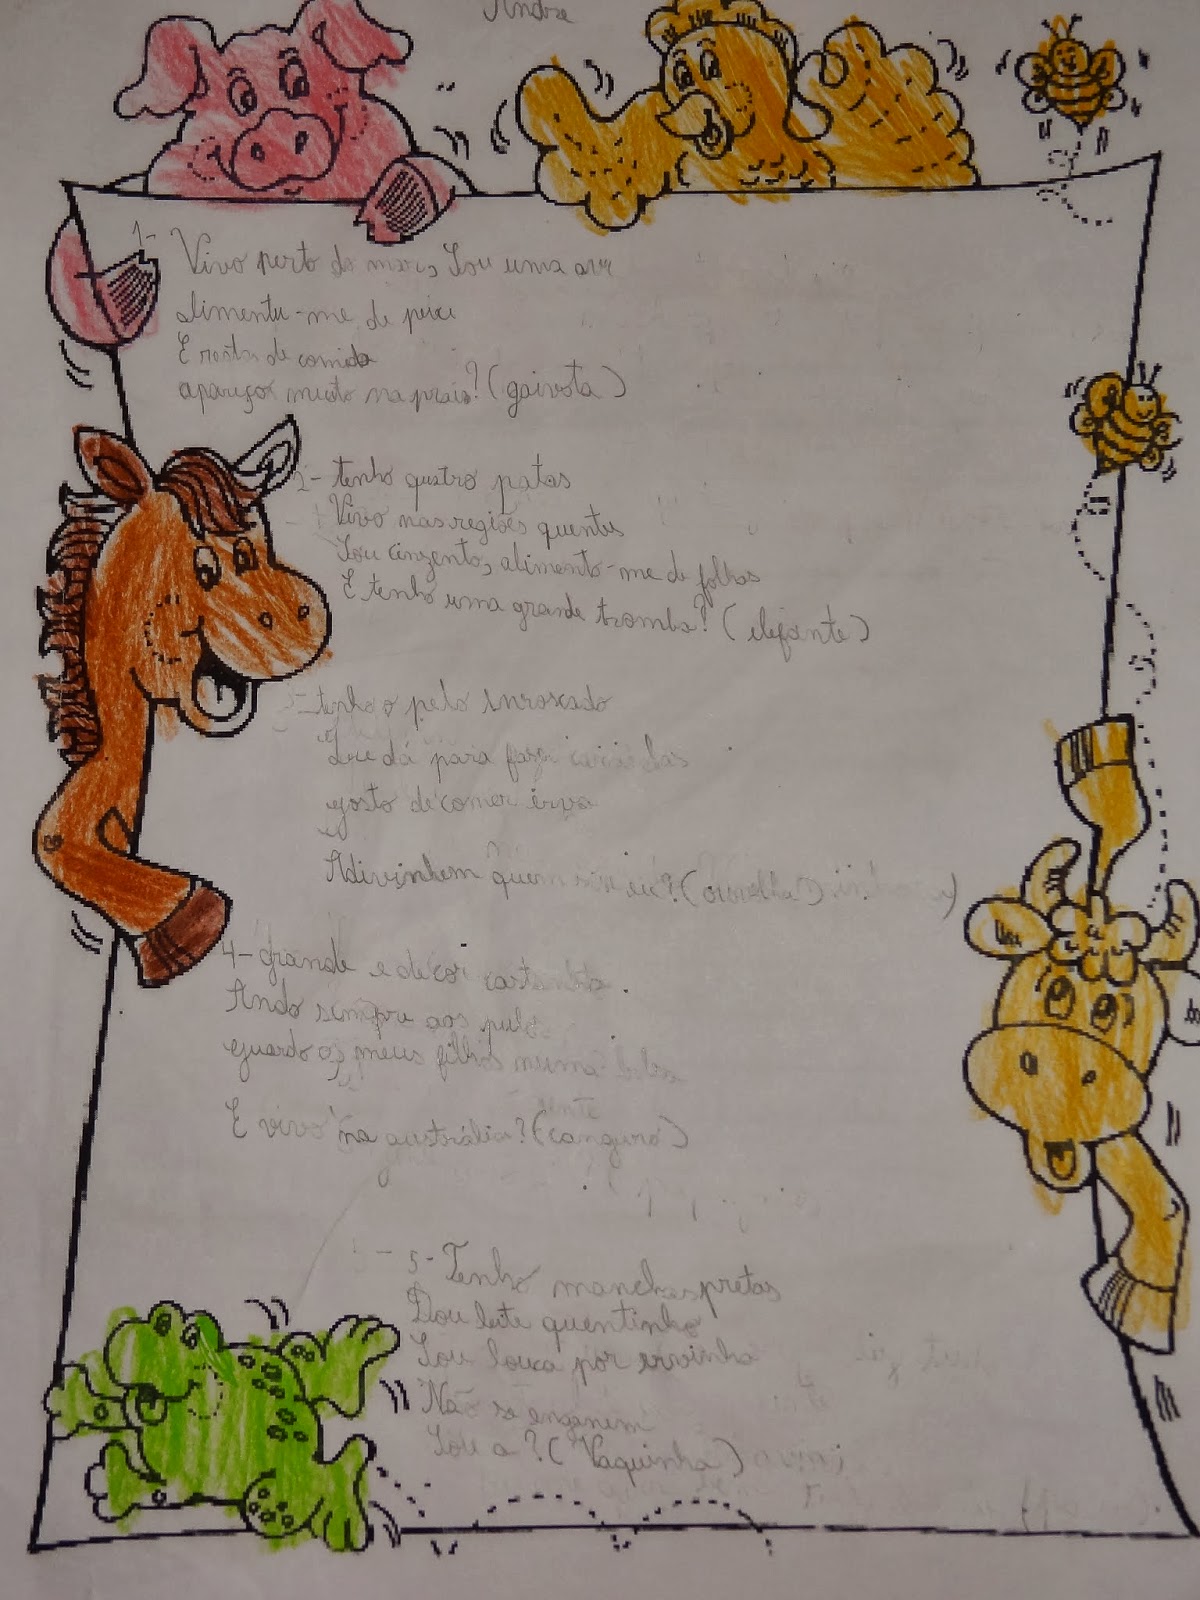 André
1- Vivo perto do mar, Sou uma ave
alimento-me de peixe
E restos de comida
apareço muito na praia? (gaivota)
2- tenho quatro patas
Vivo nas regiões quentes
Sou cinzento, alimento-me de folhas
E tenho uma grande tromba? (elefante)
3- tenho o pelo enroscado
Que dá para fazer
gosto de comer erva
Adivinhem quem sou eu? (ovelha)
4- Grande e de cor castanha.
Ando sempre aos pulos
guardo os meus filhos numa bolsa
E vivo na austrália? (canguru)
5- Tenho manchas pretas
Dou leite quentinho
Sou louca por ervinha
Não se enganem
Sou a? (Vaquinha)